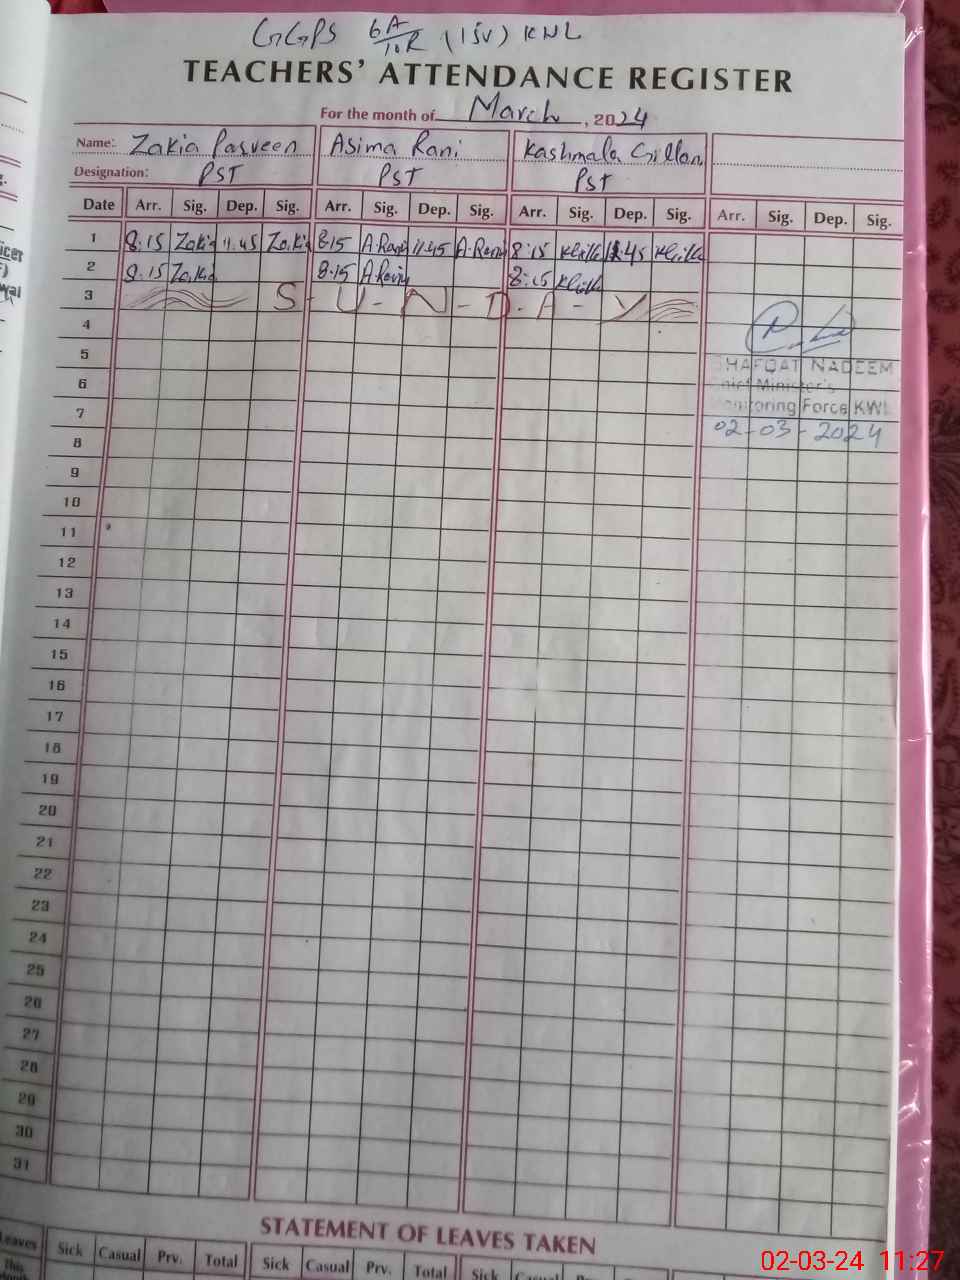 GGPS 6A/10R (15V) KNL
TEACHERS' ATTENDANCE REGISTER
For the month of March, 2024
Name: Zakia Parveen Asima Rani Kashmala
Designation: PST PST PST
Date Arr. Sig. Dep. Sig. Arr. Sig. Dep. Sig. Arr. Sig. Dep. Sig. Arr. Sig. Dep. Sig.
1 8:15 Zakia 11.45 Zakia 8:15 A.Rani 11.45 A.Rani 8:15 11:45
2 8:15 Zakia 8:15 A.Rani 8:15
3 S-U-N-D-A-Y
4
5
SHAFQAT NADEEM
6
Chief Minister's
7
Monitoring Force KWL
8
02-03-2024
9
10
11
12
13
14
15
16
17
18
19
20
21
22
23
24
25
26
27
28
29
30
31
STATEMENT OF LEAVES TAKEN
Leaves Sick Casual Prv. Total Sick Casual Prv. Total Sick Casual Prv. Total
This
02-03-24 11:27